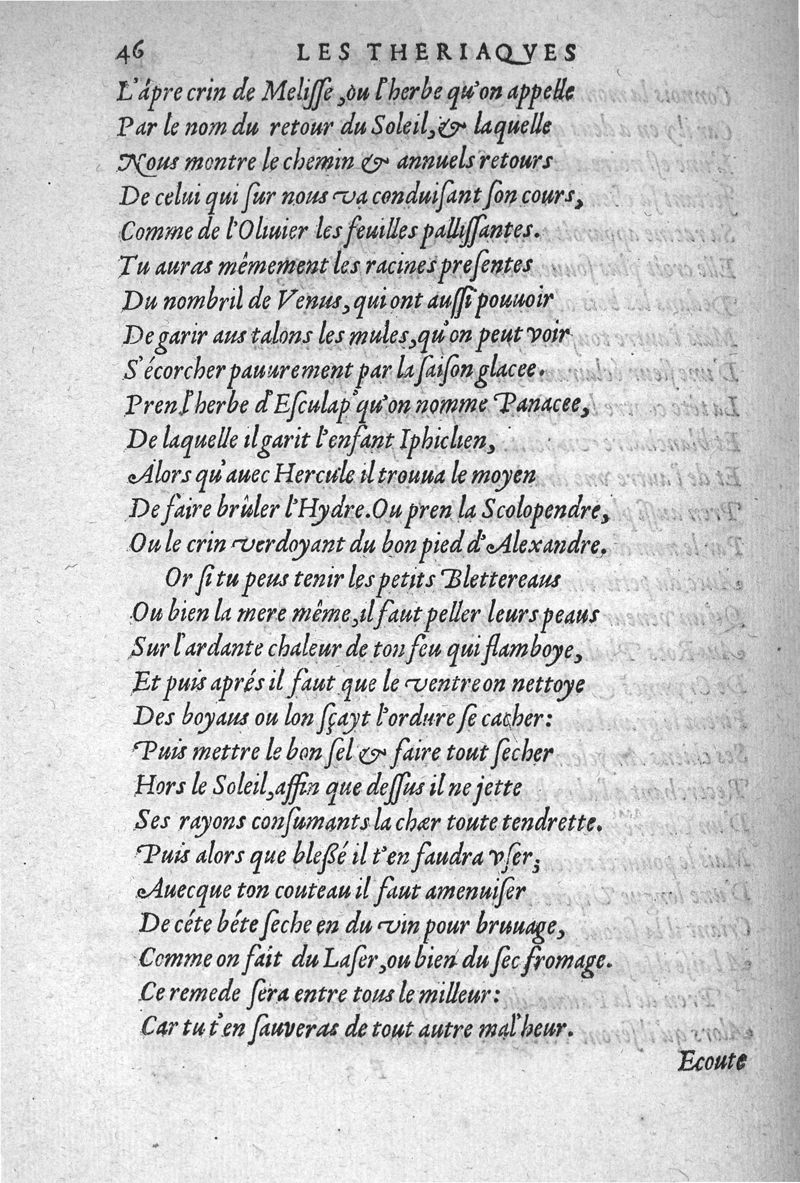 46 LES THERIAQVES
L'âpre crin de Melisse, ou l'herbe qu'on appelle
Par le nom du retour du Soleil, & laquelle
Nous montre le chemin & annuels retours
De celui qui ſur nous va conduiſant ſon cours,
Comme de l'Oliuier les feuilles palliſſantes.
Tu auras mêmement les racines preſentes
Du nombril de Venus, qui ont auſſi pouuoir
De garir aus talons les mules, qu'on peut voir
S'écorcher pauurement par la ſaiſon glacee.
Pren l'herbe d'Eſculap' qu'on nomme Panacee,
De laquelle il garit l'enfant Iphiclien,
Alors qu'auec Hercule il trouua le moyen
De faire brûler l'Hydre. Ou pren la Scolopendre,
Ou le crin verdoyant du bon pied d'Alexandre.
Or ſi tu peus tenir les petits Blettereaus
Ou bien la mere même, il faut peller leurs peaus
Sur l'ardante chaleur de ton feu qui flamboye,
Et puis aprés il faut que le ventre on nettoye
Des boyaus ou lon ſçayt l'ordure ſe cacher:
Puis mettre le bon ſel & faire tout ſecher
Hors le Soleil, affin que deſſus il ne jette
Ses rayons conſumants la chær toute tendrette.
Puis alors que bleßé il t'en faudra vſer;
Auecque ton couteau il faut amenuiſer
De céte béte ſeche en du vin pour bruuage,
Comme on fait du Laſer, ou bien du ſec fromage.
Ce remede ſera entre tous le milleur:
Car tu t'en ſauveras de tout autre mal'heur.
Ecoute